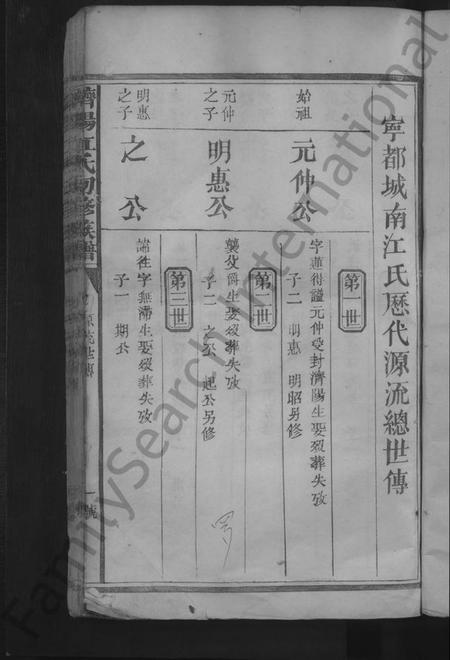 寧都城南江氏歷代源流總世傳
第一世
始祖
元仲公
字蓮得諡元仲受封濟陽生娶歿葬失攷
子二 明惠 明昭另修
第二世
元仲之子
明惠公
襲父爵生娶歿葬失攷
子二 之公 起公另修
第三世
明惠之子
之公
諱往字無滯生娶歿葬失攷
子一 期公
濟陽江氏初修族譜
源流世傳
一號
FamilySearch International